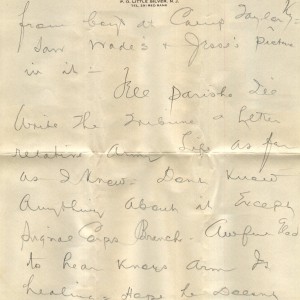 P. O. LITTLE SILVER, N. J.
from boys at Camp Taylor Ky
Saw Wade's & Jesse's picture
in it –
Tell Parisho I'll
Write the Tribune a letter
relative Army Life as far
as I know. Dont know
Anything about it Except
Signal Corps Branch. Awful Glad
to hear Knox arm is
healing. Hope he